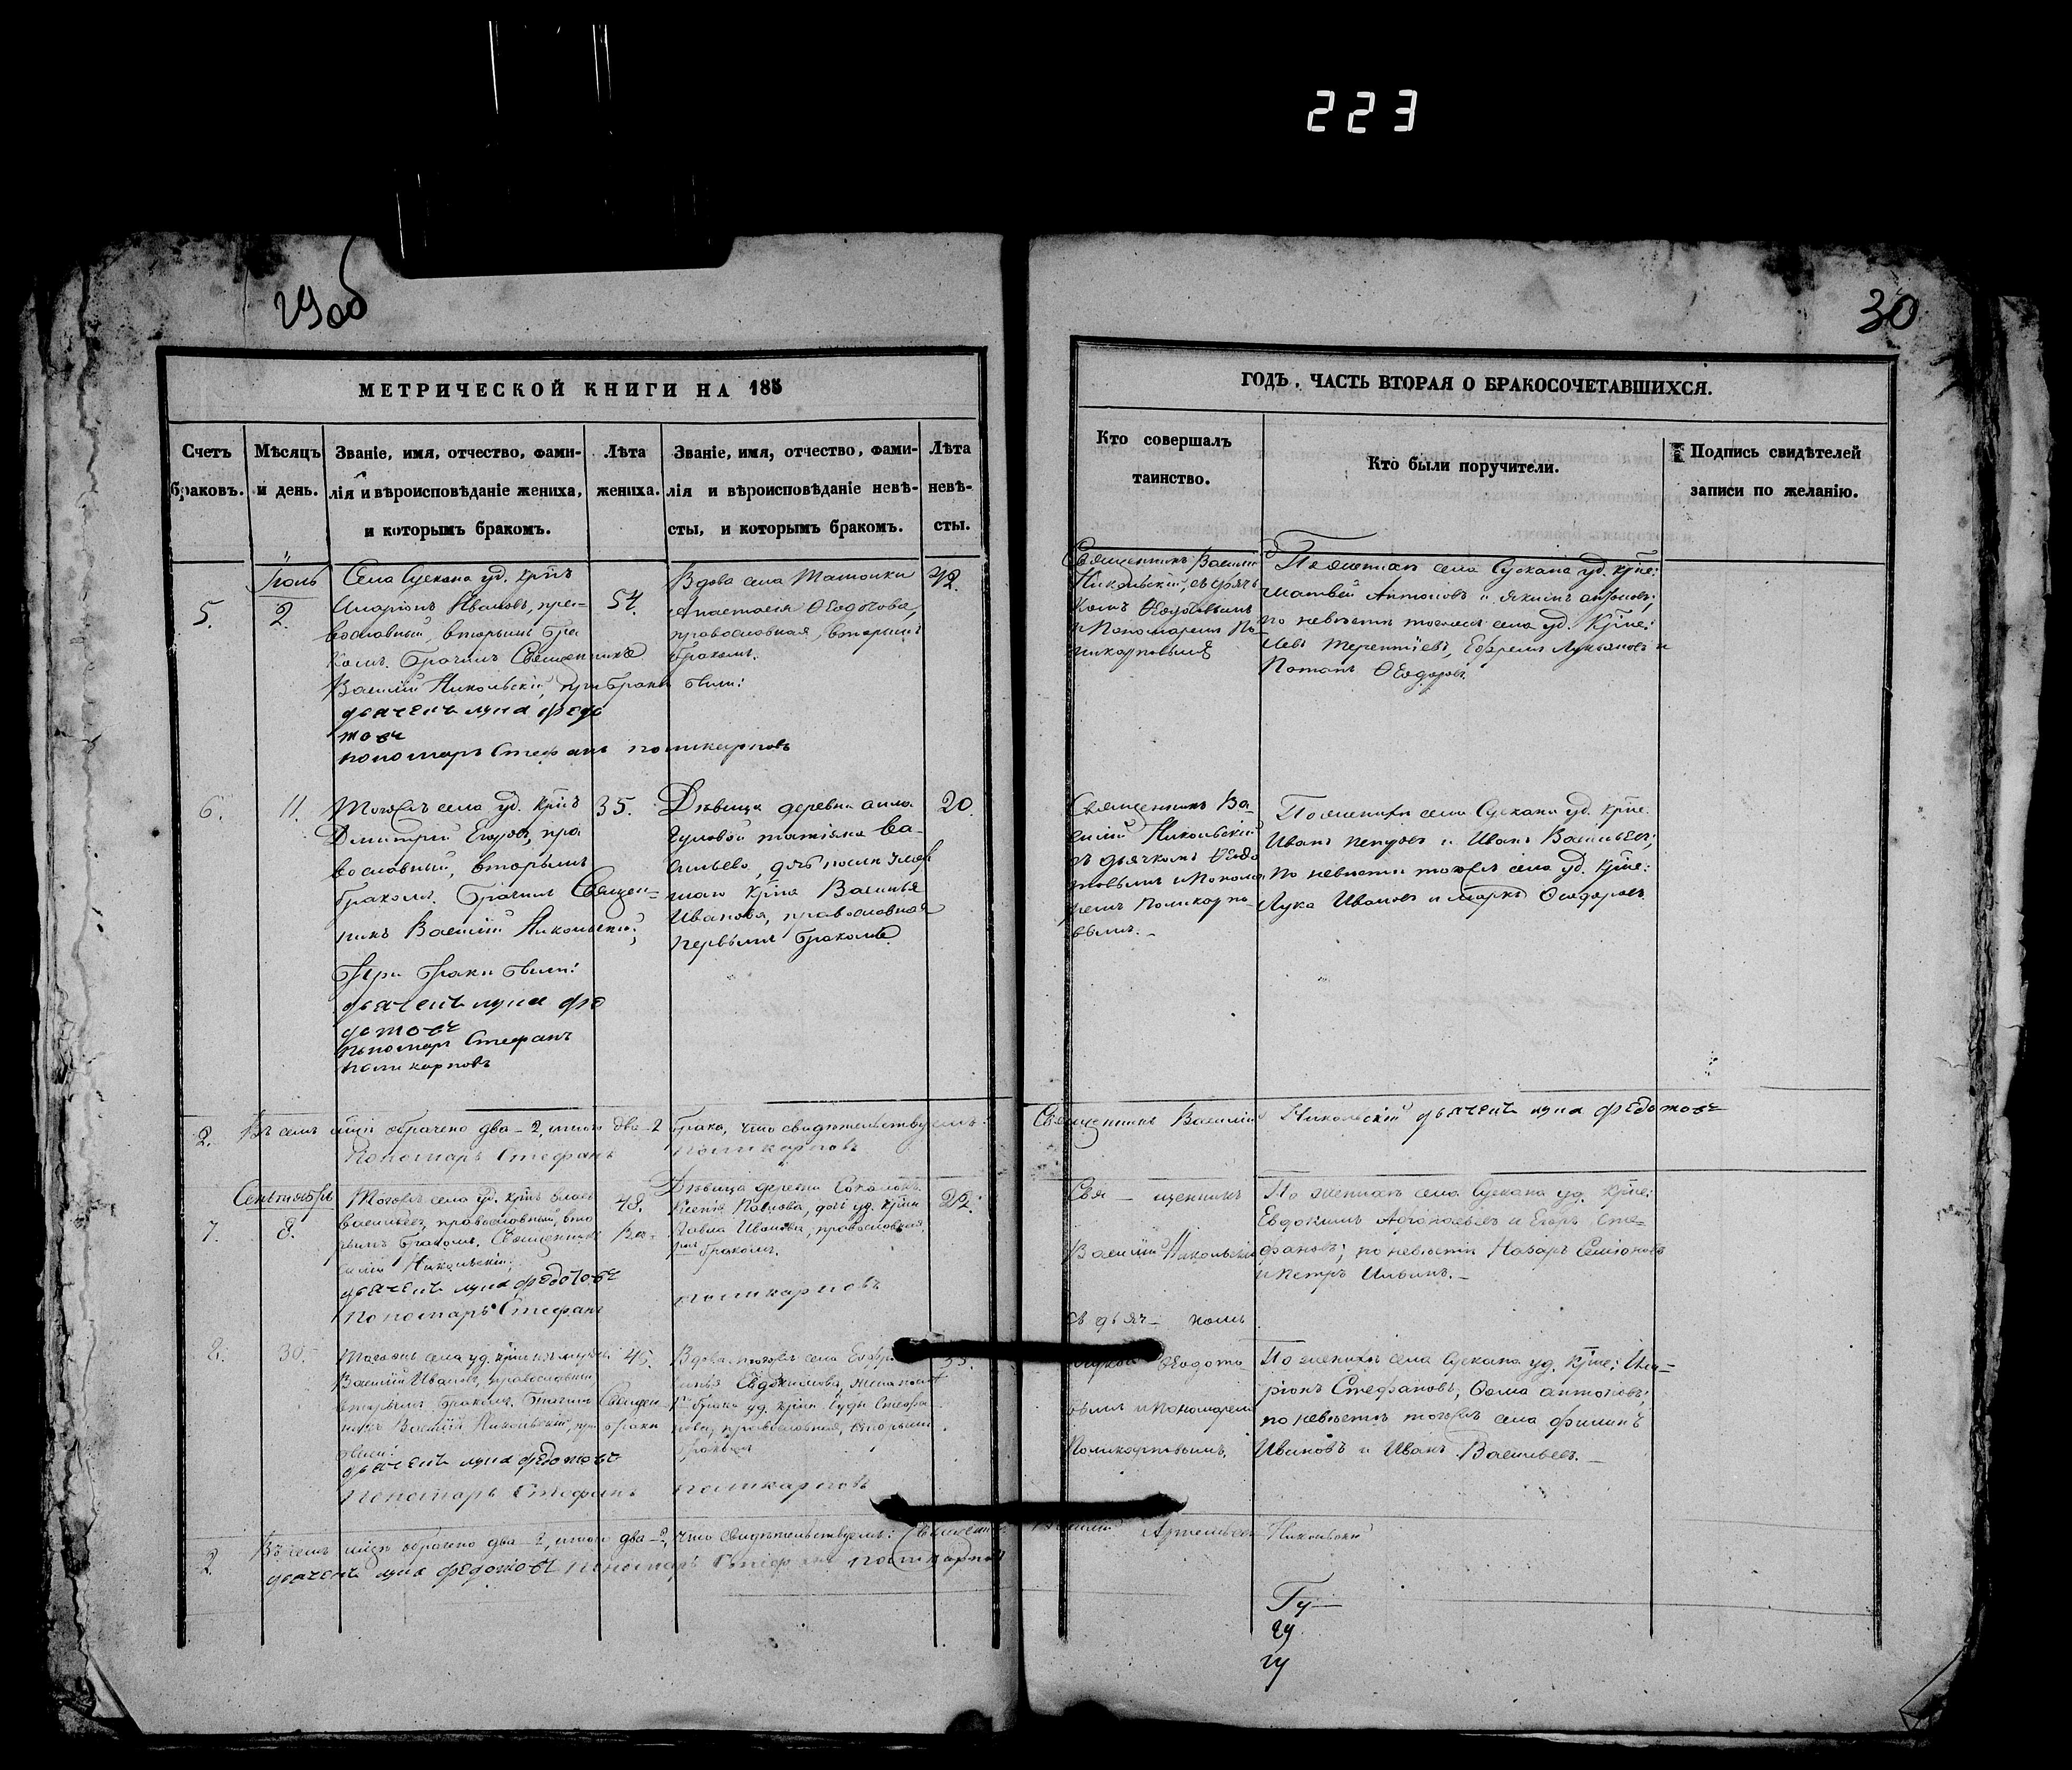 223
29об
30
МЕТРИЧЕСКОЙ КНИГИ НА 185
ГОДЪ, ЧАСТЬ ВТОРАЯ О БРАКОСОЧЕТАВШИХСЯ.
Счетъ браковъ.
Мѣсяцъ и день.
Званіе, имя, отчество, фами-
лія и вѣроисповѣданіе жениха,
и которымъ бракомъ.
Лѣта
жениха.
Званіе, имя, отчество, фами-
лія и вѣроисповѣданіе невѣ-
сты, и которымъ бракомъ.
Лѣта
невѣ-
сты.
Кто совершалъ
таинство.
Кто были поручители.
Подпись свидѣтелей
записи по желанію.
5.
2.
Села Сускана уд. крнъ
Иларіонъ Ивановъ, пра-
вославный, вторымъ бра
комъ. Брачилъ Священникъ
Василій Никольскій, при браке были:
дьячекъ лука федо
товъ
пономарь Стефанъ поликарповъ
54.
Вдова села
Анастасія Ѳеодотова,
православная, вторымъ
бракомъ.
42.
Священникъ Василій
Никольскій, съ дьяч
комъ Ѳеодотовымъ
и Пономаремъ По
ликарповымъ
По женихе села Сускана уд. крне:
матвей Антоновъ и якимъ антоновъ;
по невѣсте тогожъ села уд. крне:
Левъ Терентіевъ, Ефремъ Лукьяновъ и
Потапъ Ѳеодоровъ.
6.
11.
Тогожъ села уд. крнъ
Дмитрій Егоровъ, пра
вославный, вторымъ
бракомъ. Брачилъ Священ-
никъ Василій Никольскій;
При браке были:
дьячекъ лука фе
дотовъ
пономарь Стефанъ
поликарповъ
35.
Дѣвица деревни
татіана Ва-
сильева, дчь после умер
шаго крна Василья
Иванова, православная
первымъ бракомъ.
20.
Священникъ Ва-
силій Никольскій
съ дьячкомъ Ѳеодо
товымъ и Понома
ремъ Поликарпо-
вымъ.
По женихе села Сускана уд. крне
Иванъ Петровъ и Иванъ Васильевъ;
по невѣсте тогожъ села уд. крне:
Лука Ивановъ и маркъ Ѳеодоровъ.
2.
Въ семъ мцѣ обрачено два-2, итого два-2 брака, что свидѣтельствуемъ:
Священникъ Василій Никольскій дьячекъ лука федотовъ
Пономарь Стефанъ поликарповъ
Сентябрь
7.
8.
Тогожъ села уд. крнъ власъ
Васильевъ, православный, вто
рымъ бракомъ. Священникъ Ва-
силій Никольскій;
дьячекъ лука федотовъ
Пономарь Стефанъ поликарповъ
48.
Дѣвица деревни
Ксенія Павлова, дочь уд. крна
Павла Иванова, православная
бракомъ.
22.
Свя- щенникъ
Василій Никольскій
съ дьяч- комъ
По женихе села Сускана уд. крне:
Евдокимъ Афонасьевъ и Егоръ Сте-
фановъ; по невѣсте Назаръ Семіоновъ
и петръ Ильинъ.
8.
30.
Василій Ивановъ, православный
вторымъ бракомъ. Брачилъ Священ-
никъ Василій Никольскій, при браке
были:
дьячекъ лука федотовъ
Пономарь Стефанъ поликарповъ
45.
Вдова тогожъ села
Евдокимова, жена после
брака уд. крна Стефа
нова, православная, вторымъ
бракомъ
Ѳеодото
вымъ и Пономаремъ
Поликарповымъ.
По женихе села Сускана уд. крне: Ила-
ріонъ Стефановъ, Ѳома антоновъ;
по невѣсте тогожъ села филипъ
Ивановъ и Иванъ Васильевъ.
2
Въ семъ мцѣ обрачено два-2, итого два-2, что свидѣтельствуемъ: Священникъ
Василій Никольскій
дьячекъ лука федотовъ пономарь Стефанъ поликарповъ